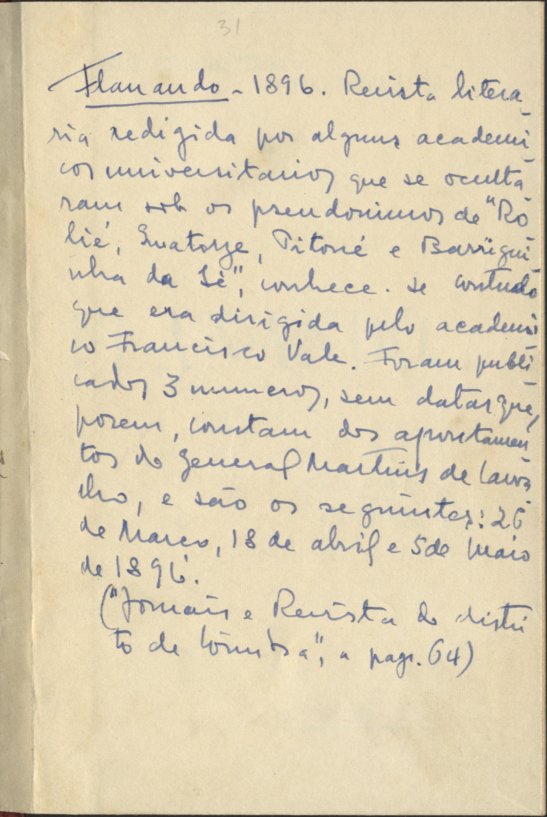 31
Flanando - 1896. Revista litera-
ria redigida por alguns academi-
cos universitarios que se oculta-
ram sob os pseudonimos de "Ró-
lié, Quatorze, Pitoné e Barrigui-
nha da Sé", conhece-se contudo
que era dirigida pelo academi-
co Francisco Vale. Foram publi-
cados 3 numeros, sem datas que,
porem, constam dos apontamen-
tos do general Martins de Carva-
lho, e são os seguintes: 26
de Março, 18 de abril e 5 de Maio
de 1896.
("Jornais e Revista do distri-
to de Coimbra", a pags. 64)